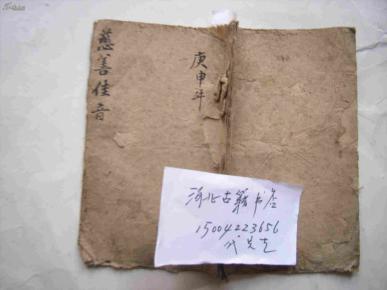 慈善佳音
庚申年
河北古籍书屋
15004223656